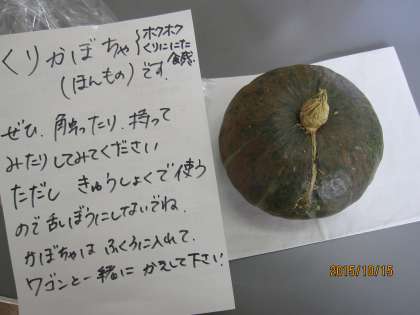 くりかぼちゃ
ホクホク
くりににた
食感
(ほんもの)です.
ぜひ、触ったり、持って
みたりしてみてください
ただし きゅうしょくで使う
ので乱ぼうにしないでね.
かぼちゃは ふくろに入れて、
ワゴンと一緒に かえして下さい
2015/10/15